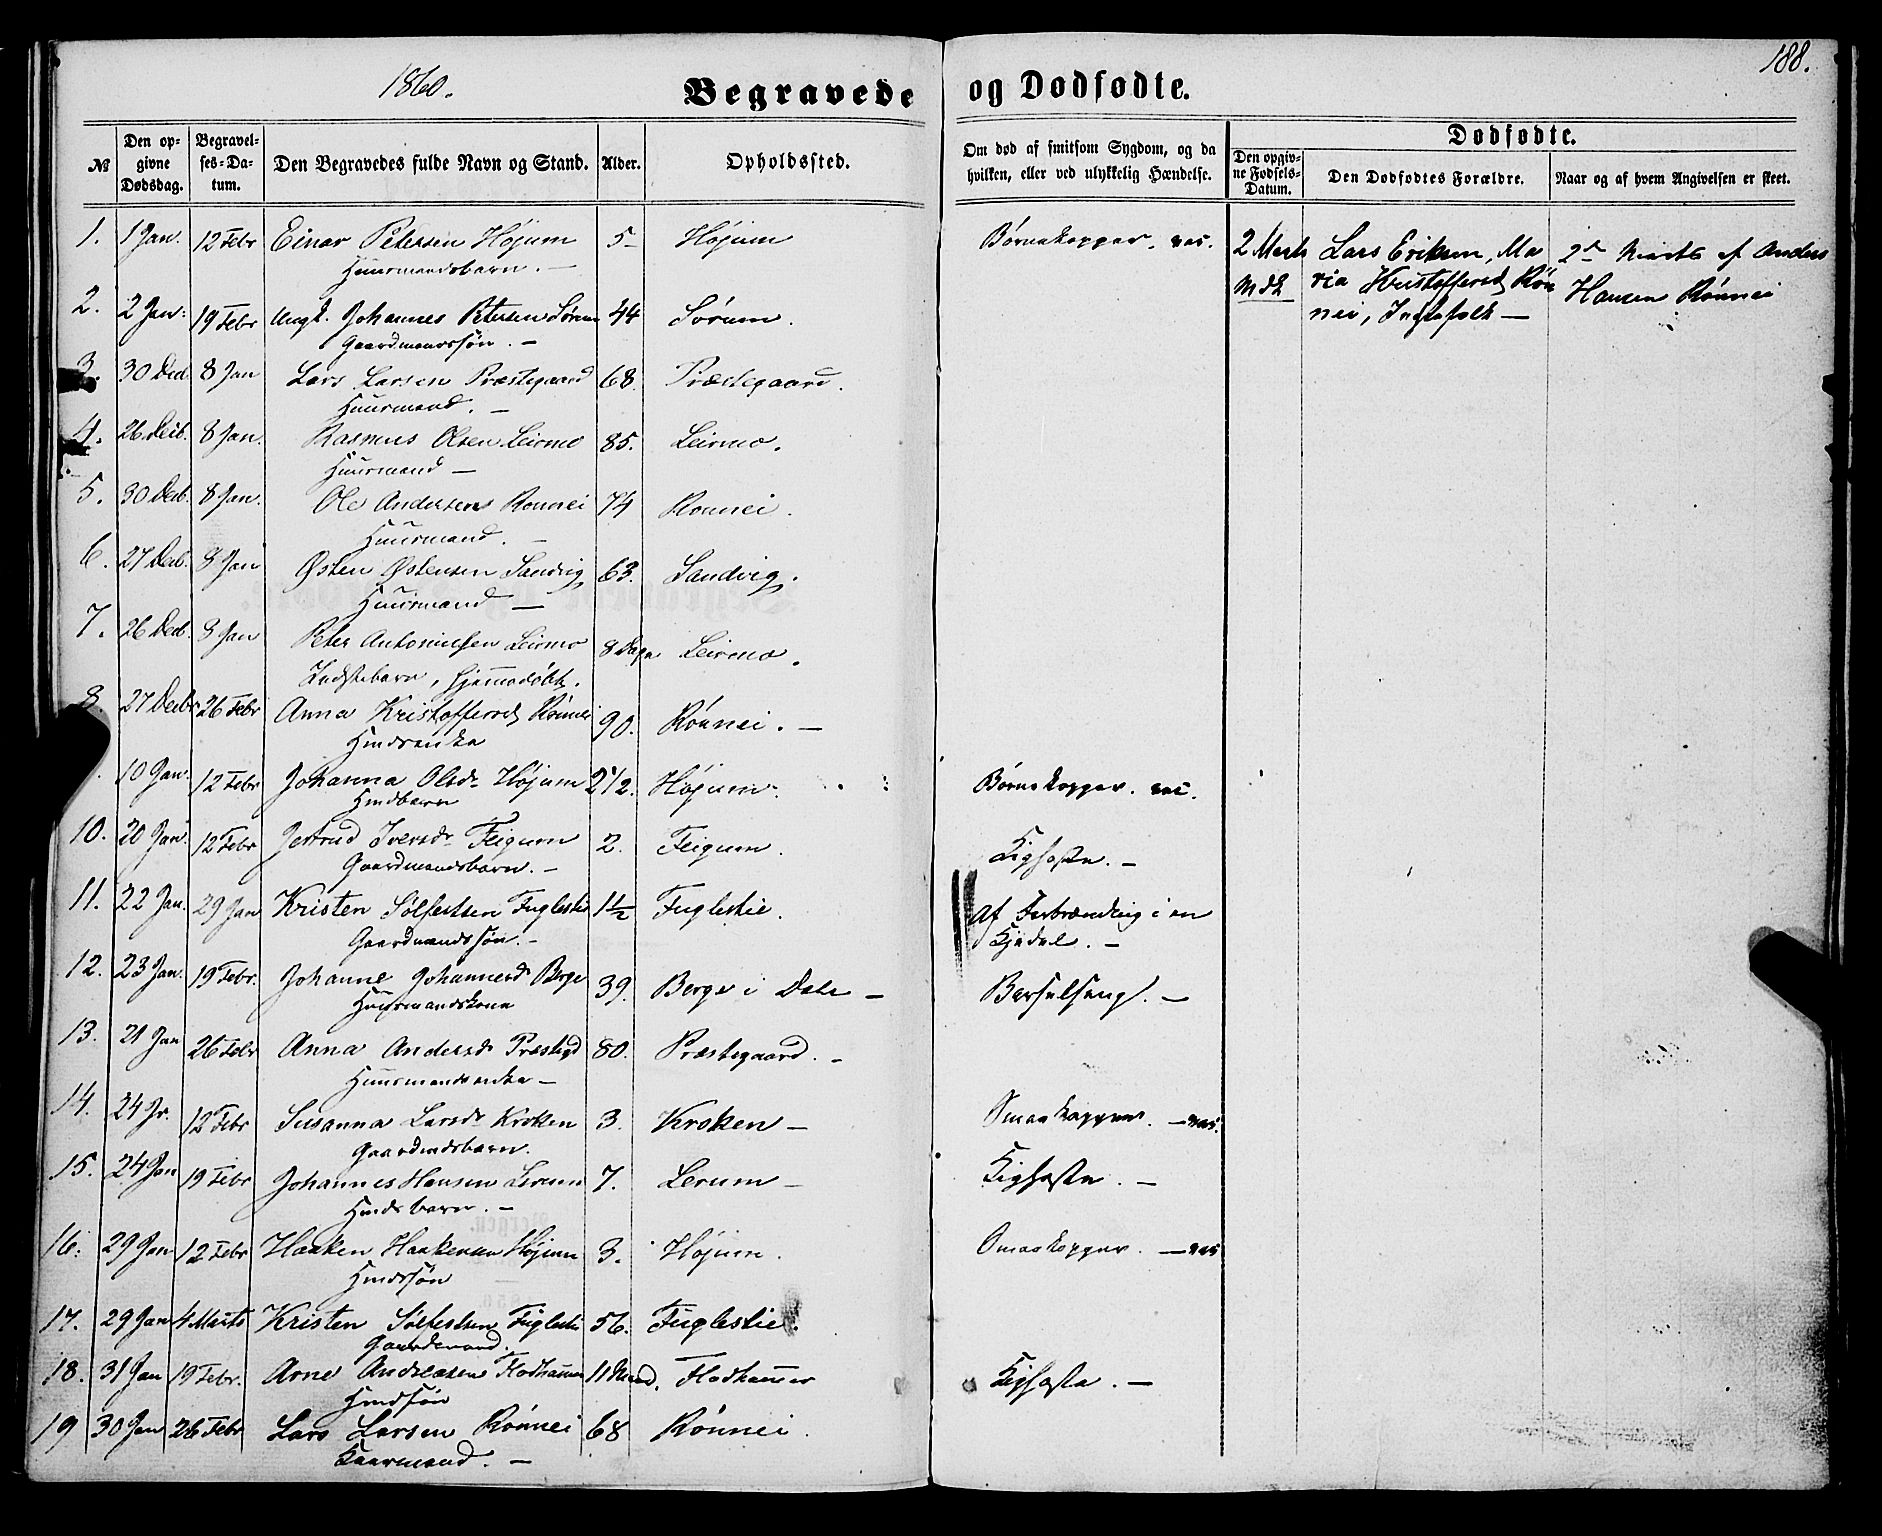 1860.
188.
Begravede og Dødfødte.
№
Den opgivne Dødsdag.
Begravelses-Datum.
Den Begravedes fulde Navn og Stand.
Alder.
Opholdssted.
Om død af smitsom Sygdom, og da hvilken, eller ved ulykkelig Hændelse.
Dødfødte.
Den opgivne Fødsels-Datum.
Den Dødfødtes Forældre.
Naar og af hvem Angivelsen er skeet.
1. 1 Jan. 12 Febr Einar Petersen Højum 5 Højum Børnekopper. vac.
Huusmandsbarn. —
2 Marts Lars Eriksen, Ma
ria Kristoffersd Røn
nei, Inderfolk —
2 Marts af Anders
Hansen Rønnei
2. 2 Jan. 19 Febr Ungk. Johannes Petersen Sørum 44 Sørum.
Gaardmandssøn. —
3. 30 Decb. 8 Jan Lars Larsen Præstegaard 68. Præstegaard.
Huusmand. —
4. 26 Decb. 8 Jan. Rasmus Olsen Leirmo 85. Leirmo.
Huusmand —
5. 30 Decb. 8 Jan. Ole Andersen Ronnei 74 Ronnei.
Huusmand. —
6. 27 Decb. 8 Jan Østen Østensen Sandvig 63. Sandvig.
Huusmand —
7. 26 Decb. 8 Jan Peter Antoniussen Leirmo 8 Dage Leirmo.
Inderstebarn, hjemmedøbt.
8. 27 Decbr 26 Febr Anna Kristoffersd Rønnei 90. Rønnei. —
Hmdsenke
10 Jan. 12 Febr Johanna Olsdr Højum 2 1/2. Højum. Børnekopper. vac.
Hmdbarn
10. 20 Jan. 12 Febr Jertrud Iversdr Feigum 2. Feigum. Kighoste. —
Gaardmandsbarn. —
11. 22 Jan. 29 Jan Kristen Sølfestsen Fuglestie 1 1/2 Fuglestie. Af Forbrænding i en
Gaardmandssøn. — Kjedel. —
12. 23 Jan. 19 Febr. Johanne Johannesd Berge 39. Berge i Dale — Barselseng. —
Huusmandskone
13. 21 Jan 26 Febr Anna Andersdr Præstegd 80. Præstegaard. —
Huusmandsenke —
14. 24 Jr. 12 Febr Susanna Larsdr Kroken 3. Kroken — Smaakopper. — vac.
Gaardmdsbarn.
15. 24 Jan 19 Febr Johannes Hansen Lerum 7. Lerum — Kighoste. —
Hmdsbarn. —
16. 29 Jan 12 Febr Haaken Haakensen Højum 3. Højum. Smaakopper. — vac
Hmdssøn
17. 29 Jan 4 Marts Kristen Sølfestsen Fuglestie 56. Fuglestie.
Gaardmand.
18. 31 Jan 19 Febr. Arne Andreasen Flodhammer 11 Maand. Flodhammer Kighoste. —
Hmdsøn
19 30 Jan 26 Febr Lars Larsen Rønnei 68 Rønnei.
Kaarmand. —